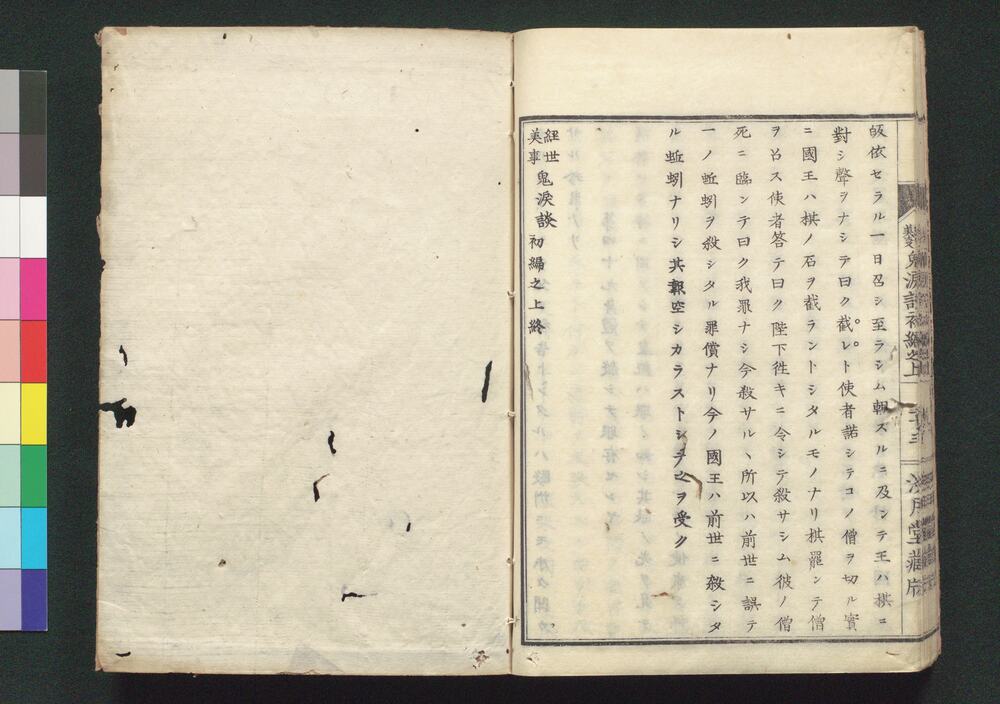 皈依セラル一日召シ至ラシム朝スルニ及ンテ王ハ棋ニ
對シ聲ヲナシテ曰ク截レト使者諾シテコノ僧ヲ切ル實
ニ國王ハ棋ノ石ヲ截ラントシタルモノナリ棋罷ンテ僧
ヲ召ス使者答テ曰ク陛下徃キニ令シテ殺サシム彼ノ僧
死ニ臨ンテ曰ク我罪ナシ今殺サルヽ所以ハ前世ニ誤テ
一ノ蚯蚓ヲ殺シタル罪償ナリ今ノ國王ハ前世ニ殺シタ
ル蚯蚓ナリシ其報空シカラストシテ之ヲ受ク
経世美事鬼涙談初編之上終
鬼涙談初編之上